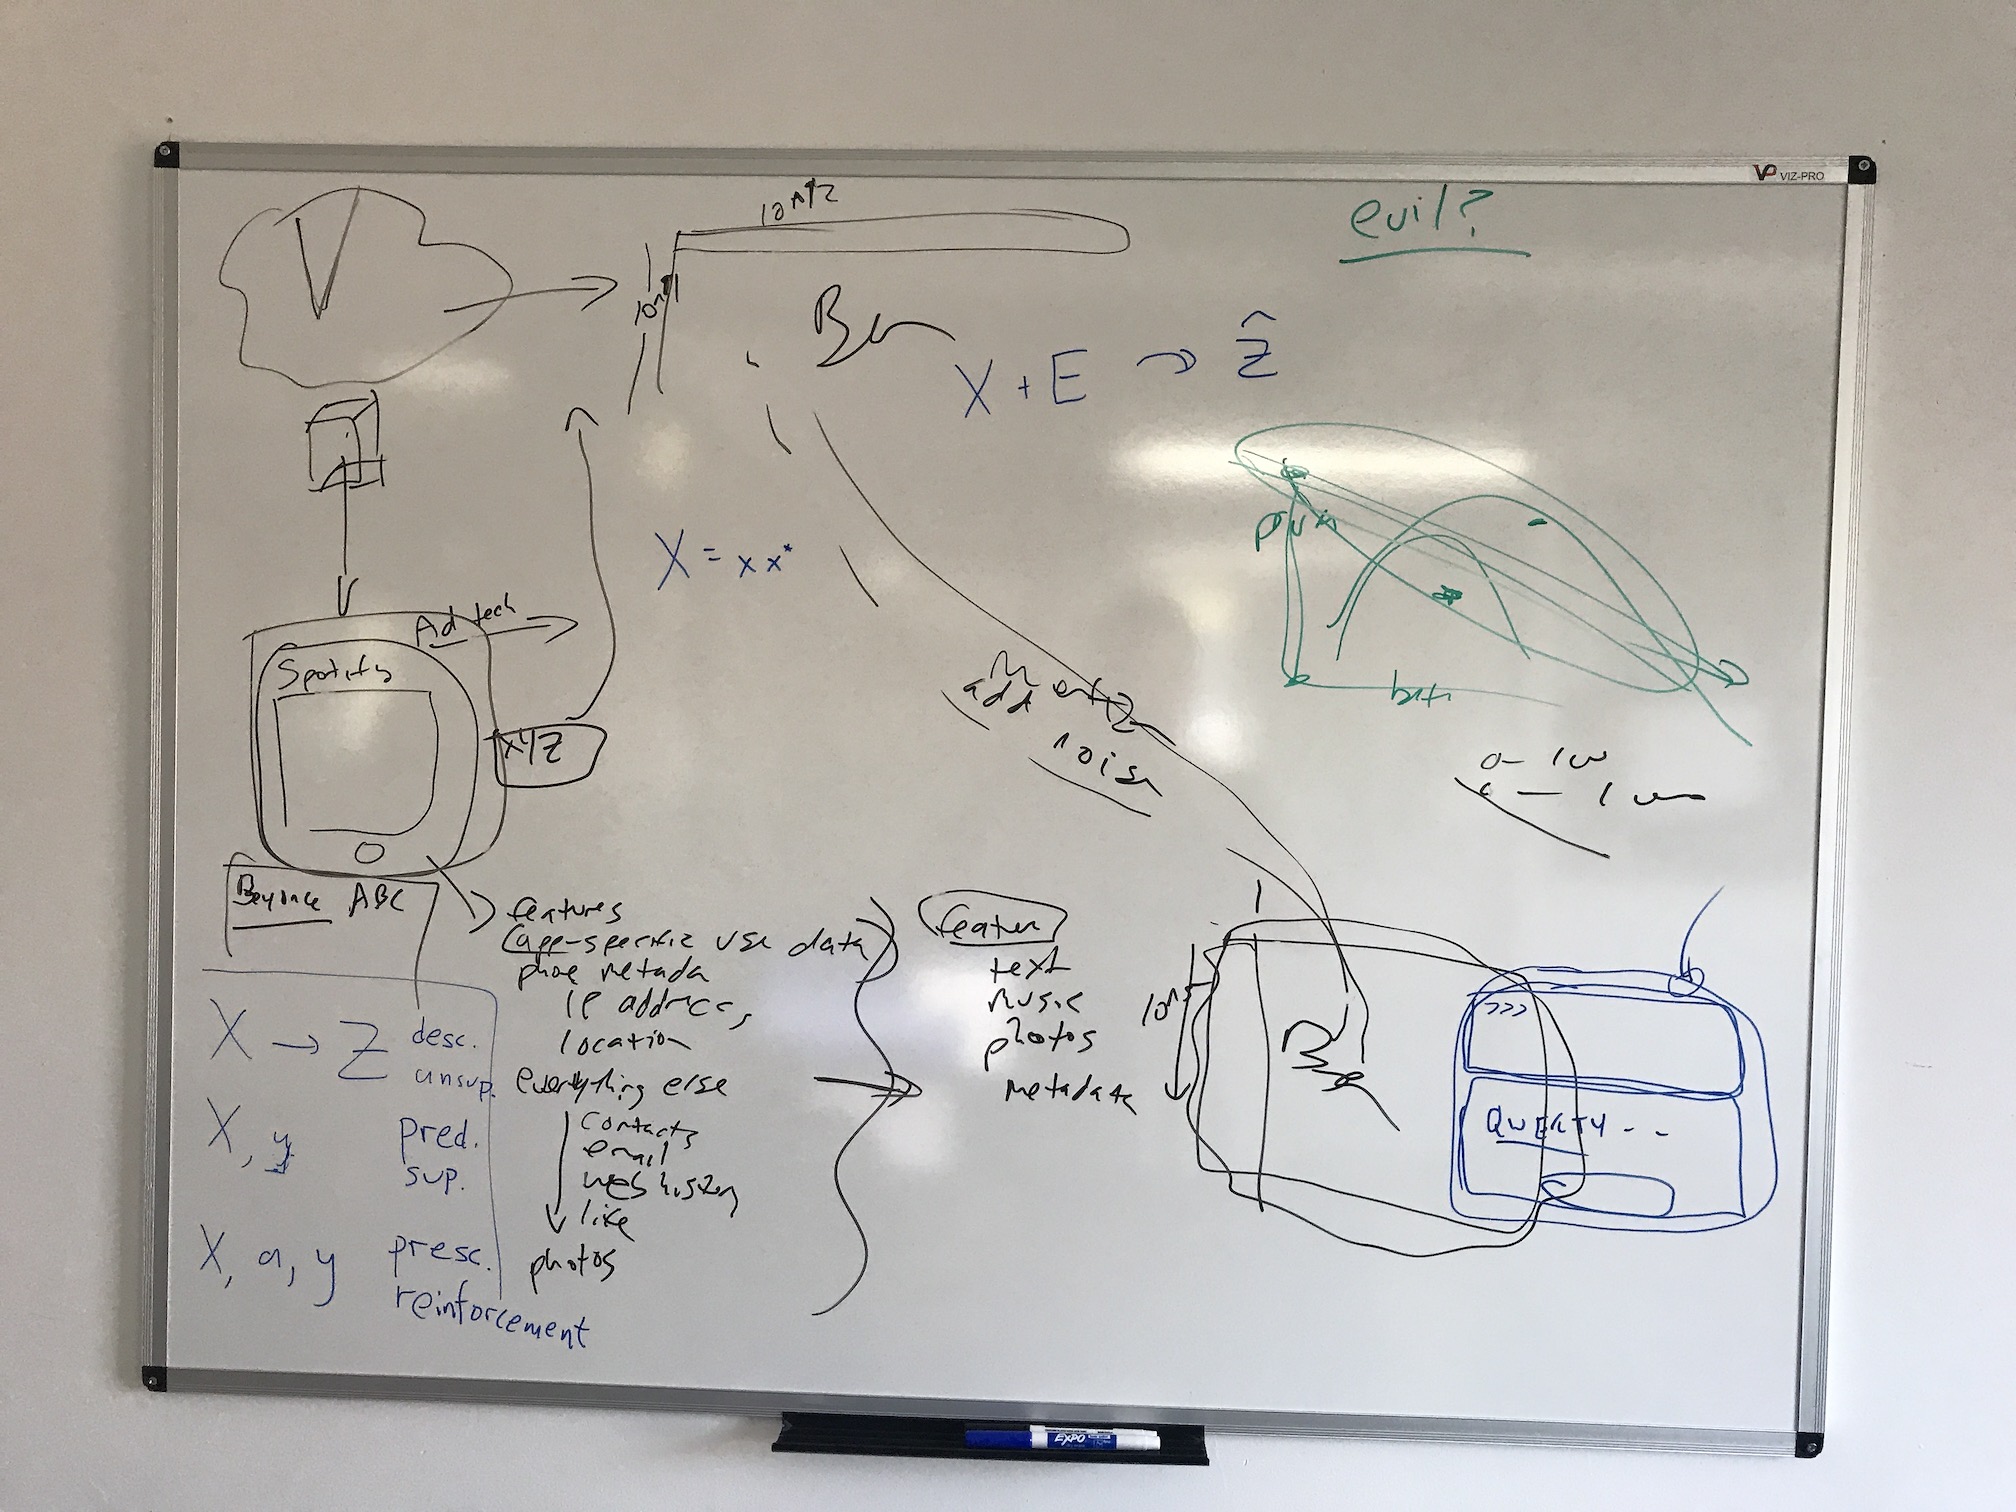 VIZ-PRO
evil?
V
X + E → ẑ
X = x x*
Ad tech
Spotify
XYZ
add
noise
Beyonce ABC
features
app-specific use data
phoe metada
IP address
location
everything else
contacts
email
web history
like
photos
featur
text
music
photos
metadata
>>>
QWERTY - -
X → Z desc.
unsup.
X, y pred.
sup.
X, a, y presc.
reinforcement
EXPO